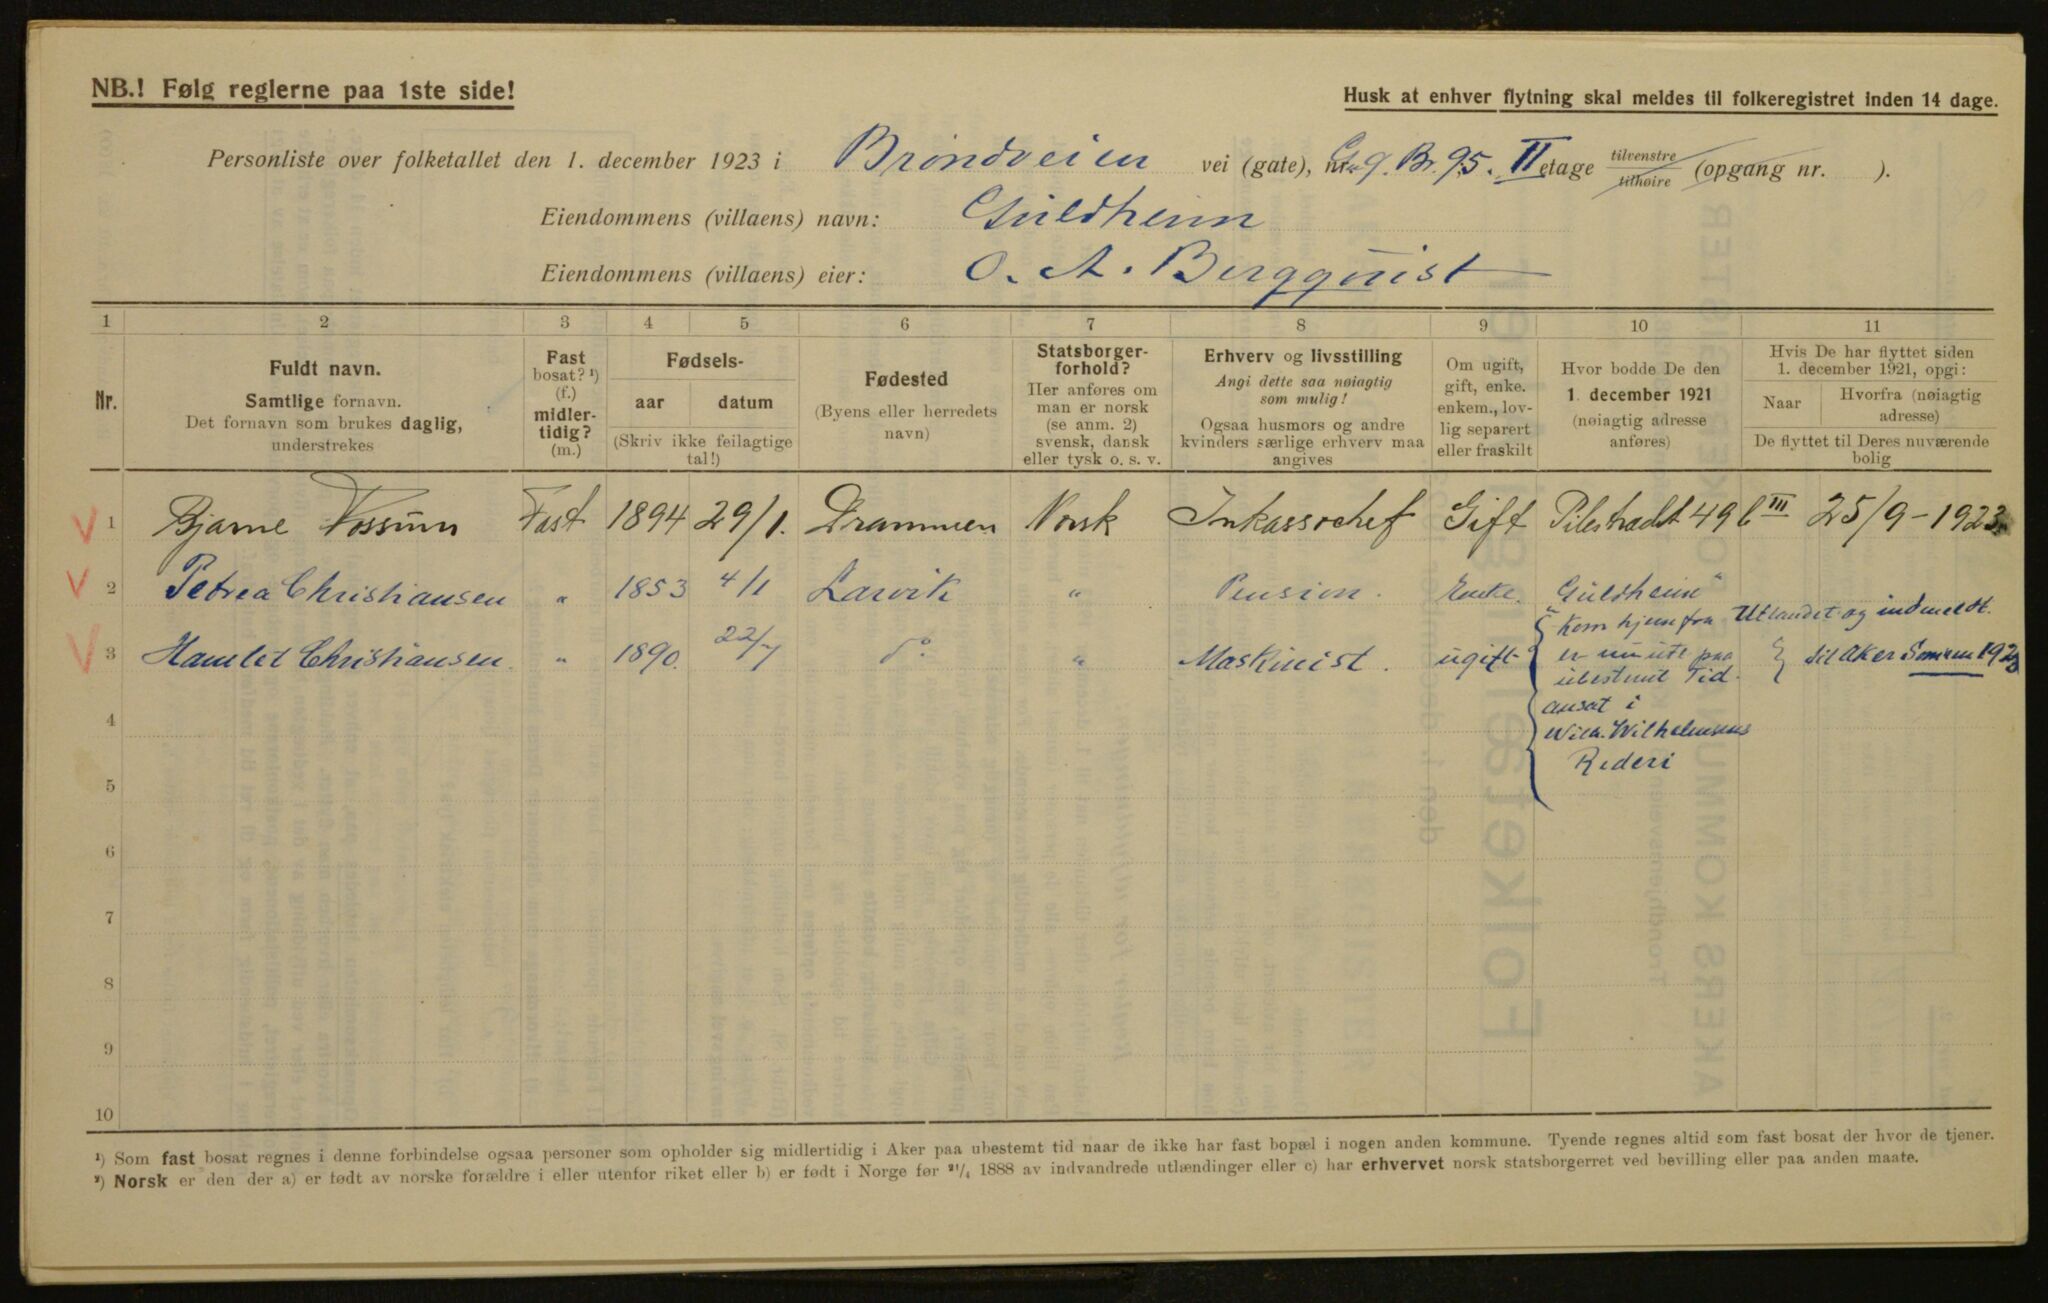 NB.! Følg reglerne paa 1ste side!
Husk at enhver flytning skal meldes til folkeregistret inden 14 dage.
Personliste over folketallet den 1. december 1923 i Brøndveien vei (gate), nr. G. 9. Br. 95. II etage tilvenstre tilhøire (opgang nr. ).
Eiendommens (villaens) navn: Guldheim
Eiendommens (villaens) eier: O. A. Bergquist
1 2 3 4 5 6 7 8 9 10 11
Nr.
Fuldt navn.
Samtlige fornavn.
Det fornavn som brukes daglig,
understrekes
Fast
bosat? ¹)
(f.)
midler-
tidig?
(m.)
Fødsels-
aar datum
(Skriv ikke feilagtige
tal!)
Fødested
(Byens eller herredets
navn)
Statsborger-
forhold?
Her anføres om
man er norsk
(se anm. 2)
svensk, dansk
eller tysk o. s. v.
Erhverv og livsstilling
Angi dette saa nøiagtig
som mulig!
Ogsaa husmors og andre
kvinders særlige erhverv maa
angives
Om ugift,
gift, enke.
enkem., lov-
lig separert
eller fraskilt
Hvor bodde De den
1. december 1921
(nøiagtig adresse
anføres)
Hvis De har flyttet siden
1. december 1921, opgi:
Naar
Hvorfra (nøiagtig
adresse)
De flyttet til Deres nuværende
bolig
1 Bjarne Vossum Fast 1894 29/1. Drammen Norsk Inkassochef Gift Pilestrædt 49 b III 25/9-1923
2 Petrea Christiansen " 1853 4/1 Larvik " Pension. Enke. "Guldheim"
3 Hamlet Christiansen " 1890. 22/7 do " Maskinist. ugift
Kom hjem fra Utlandet og indmeldt.
er nu ute paa til Aker Sommeren 1923
ubestemt Tid.
ansat i
Wilh. Wilhelmsens
Rederi
4
5
6
7
8
9
10
¹) Som fast bosat regnes i denne forbindelse ogsaa personer som opholder sig midlertidig i Aker paa ubestemt tid naar de ikke har fast bopæl i nogen anden kommune. Tyende regnes altid som fast bosat der hvor de tjener.
²) Norsk er den der a) er født av norske forældre i eller utenfor riket eller b) er født i Norge før ²¹/₄ 1888 av indvandrede utlændinger eller c) har erhvervet norsk statsborgerret ved bevilling eller paa anden maate.